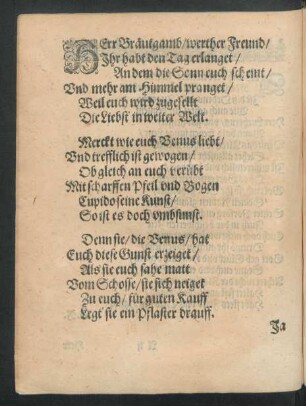 HErr Bräutgamb/ werther Freund/
Ihr habt den Tag erlanget/
An dem die Sonn euch scheint/
Vnd mehr am Himmel pranget/
Weil euch wird zugesellt
Die Liebst in weiter Welt.
Merckt wie euch Venus liebt/
Vnd trefflich ist gewogen/
Ob gleich an euch verübt
Mit scharffen Pfeil vnd Bogen
Cupido seine Kunst/
So ist es doch vmbsunst.
Denn sie/ die Venus/ hat
Euch diese Gunst erzeiget/
Als sie euch sahe matt
Vom Schosse/ sie sich neiget
Zu euch/ für guten Kauff
Legt sie ein Pflaster drauff.
Ja